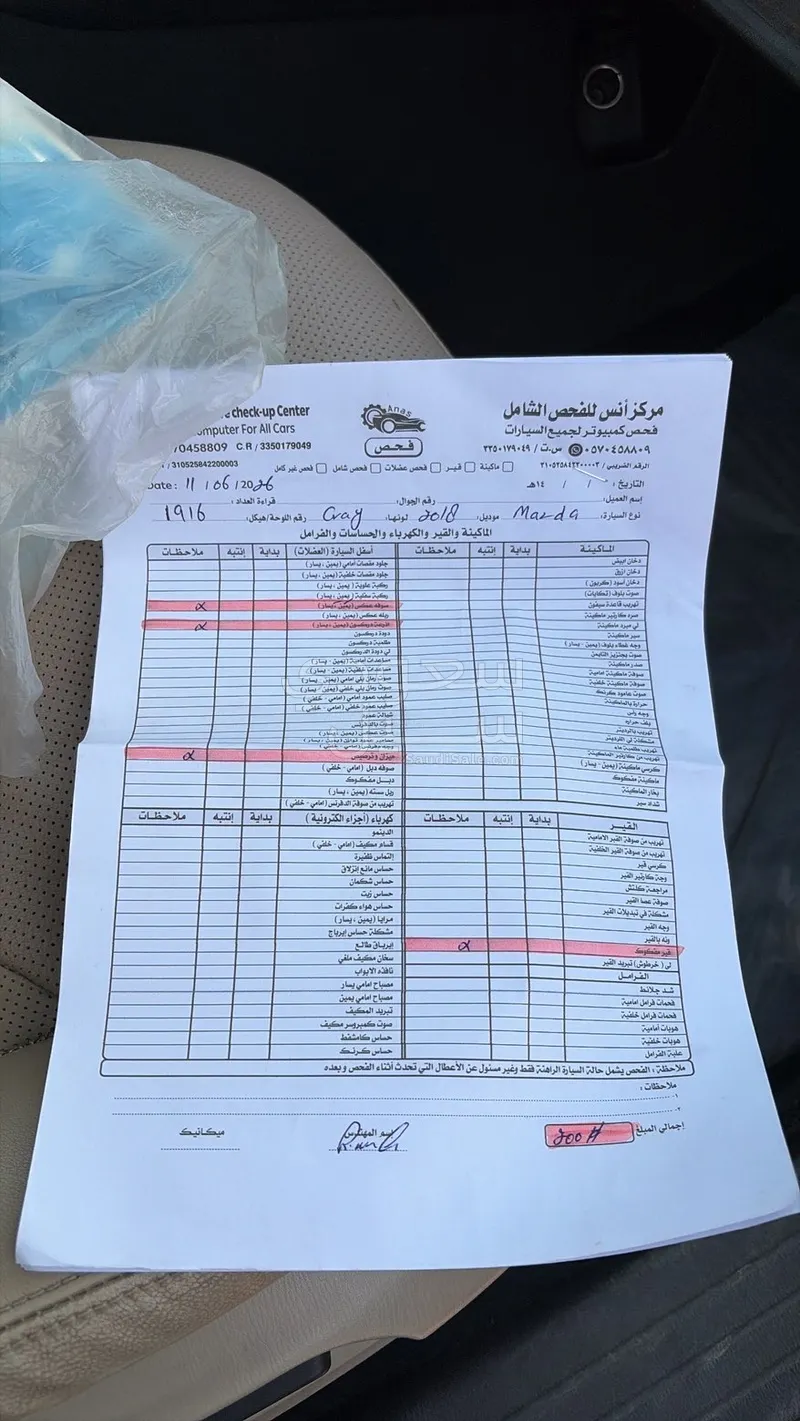 مركز أنس للفحص الشامل
فحص كمبيوتر لجميع السيارات
٠٥٧٠٤٥٨٨٠٩ س.ت / ٣٣٥٠١٧٩٠٤٩
الرقم الضريبي / ٣١٠٥٢٥٨٤٢٢٠٠٠٠٣
Anas
فحص
check-up Center
omputer For All Cars
70458809 C.R / 3350179049
310525842200003
ماكينة قير فحص عضلات فحص شامل فحص غير كامل
التاريخ : / / ١٤هـ
Date : 11 / 06 / 2026
إسم العميل: رقم الجوال: قراءة العداد:
نوع السيارة: Mazda موديل: 2018 لونها: Gray رقم اللوحة/هيكل: 1916
الماكينة والقير والكهرباء والحساسات والفرامل
الماكينة بداية إنتبه ملاحظات
دخان ابيض
دخان ازرق
دخان أسود (كربون)
صوت بلوف (تكايات)
تهريب قاعدة سيفون
صره كارتير ماكينة
لي مبرد ماكينة
سير ماكينة
وجه غطاء بلوف (يمين - يسار)
صوت جنزير التايمن
صدر ماكينة
صوفة ماكينة امامية
صوفة ماكينة خلفية
صوت عامود كرنك
حرارة بالماكينة
وجه راس
تهريب من كارتير الماكينة
كرسي ماكينة (يمين - يسار)
ماكينة مفكوك
بخار الماكينة
شداد سير
أسفل السيارة (العضلات) بداية إنتبه ملاحظات
جلود مقصات امامي (يمين ، يسار)
جلود مقصات خلفية (يمين ، يسار)
ركبة علوية (يمين ، يسار)
ركبة سفلية (يمين ، يسار)
صوفه عكس (يمين، يسار) x
ربله عكس (يمين ، يسار)
اذرعة دركسون (يمين، يسار) x
دودة دركسون
طلمبة دركسون
لي دودة الدركسون
مساعدات امامية (يمين - يسار)
مساعدات خلفية (يمين - يسار)
صوت رمان بلي امامي (يمين - يسار)
صوت رمان بلي خلفي (يمين - يسار)
صليب عمود امامي (امامي - خلفي)
صليب عمود خلفي (امامي - خلفي)
شيالة عمود
صوت بالدفرنس
ميزان وترصيص x
صوفه دبل (امامي - خلفي)
دبل مفكوك
ربل سسته (يمين ، يسار)
تهريب من صوفة الدفرنس (امامي - خلفي)
القير بداية إنتبه ملاحظات
تهريب من صوفة القير الامامية
تهريب من صوفة القير الخلفية
كرسي قير
وجه كارتير القير
مراجعة كلتش
صوفة عصا القير
مشكلة في تبديلات القير
وجه القير
ونه بالقير
قير مفكوك x
لي (خرطوش) تبريد القير
الفرامل
شد جلانط
فحمات فرامل امامية
فحمات فرامل خلفية
هوبات امامية
هوبات خلفية
علبة الفرامل
كهرباء (أجزاء الكترونية) بداية إنتبه ملاحظات
الدينمو
قسام مكيف (امامي - خلفي)
إلتماس ظفيرة
حساس مانع إنزلاق
حساس شكمان
حساس زيت
حساس هواء كفرات
مرايا (يمين ، يسار)
مشكلة حساس ايرباج
إيرباق طالع
سخان مكيف ملغي
نافذه الابواب
مصباح امامي يسار
مصباح امامي يمين
تبريد المكيف
صوت كمبروسر مكيف
حساس كامشفط
حساس كرنك
ملاحظة : الفحص يشمل حالة السيارة الراهنة فقط وغير مسئول عن الأعطال التي تحدث أثناء الفحص و بعده
ملاحظات :
١-
٢-
إجمالي المبلغ 200 #
إسم المهندس
ميكانيك